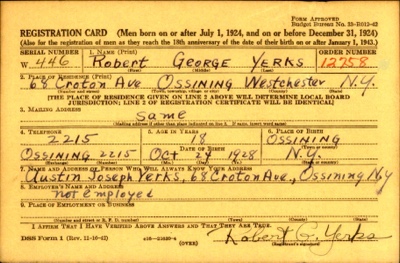 Form Approved
Budget Bureau No. 33-R012-42
REGISTRATION CARD (Men born on or after July 1, 1924, and on or before December 31, 1924)
(Also for the registration of men as they reach the 18th anniversary of the date of their birth on or after January 1, 1943.)
SERIAL NUMBER 1. NAME (Print) ORDER NUMBER
W 446 Robert George Yerks 12758
(First) (Middle) (Last)
2. PLACE OF RESIDENCE (Print)
68 Croton Ave Ossining Westchester N.Y.
(Number and street) (Town, township, village, or city) (County) (State)
[THE PLACE OF RESIDENCE GIVEN ON LINE 2 ABOVE WILL DETERMINE LOCAL BOARD
JURISDICTION; LINE 2 OF REGISTRATION CERTIFICATE WILL BE IDENTICAL]
3. MAILING ADDRESS
Same
[Mailing address if other than place indicated on line 2. If same, insert word same]
4. TELEPHONE 5. AGE IN YEARS 6. PLACE OF BIRTH
2215 18 Ossining
DATE OF BIRTH
Ossining 2215 Oct 24 1928 N.Y.
(Exchange) (Number) (Mo.) (Day) (Yr.) (State or country)
7. NAME AND ADDRESS OF PERSON WHO WILL ALWAYS KNOW YOUR ADDRESS
Austin Joseph Yerks, 68 Croton Ave., Ossining N.Y
8. EMPLOYER'S NAME AND ADDRESS
not employed
9. PLACE OF EMPLOYMENT OR BUSINESS
(Number and street or R. F. D. number) (Town) (County) (State)
I AFFIRM THAT I HAVE VERIFIED ABOVE ANSWERS AND THAT THEY ARE TRUE.
DSS Form 1 (Rev. 11-16-42) (OVER) Robert G. Yerks
(Registrant's signature)